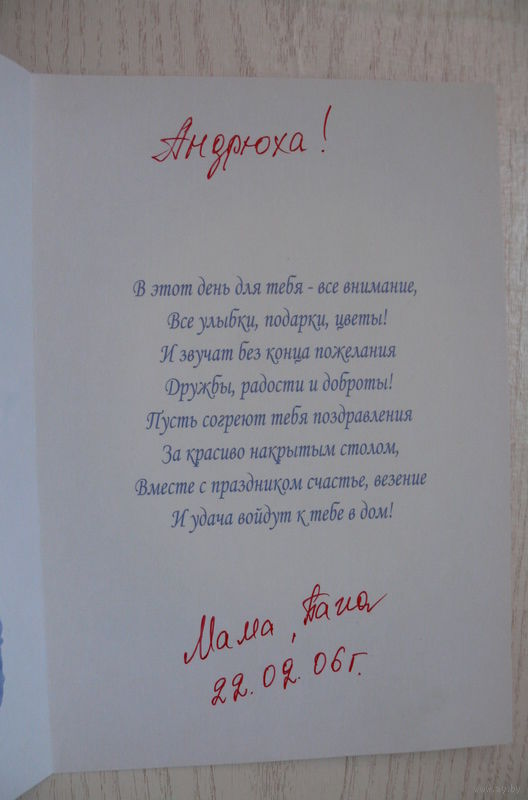 Андрюха!
В этот день для тебя - все внимание,
Все улыбки, подарки, цветы!
И звучат без конца пожелания
Дружбы, радости и доброты!
Пусть согреют тебя поздравления
За красиво накрытым столом,
Вместе с праздником счастье, везение
И удача войдут к тебе в дом!
Мама, Папа
22.02.06г.
www.ay.by